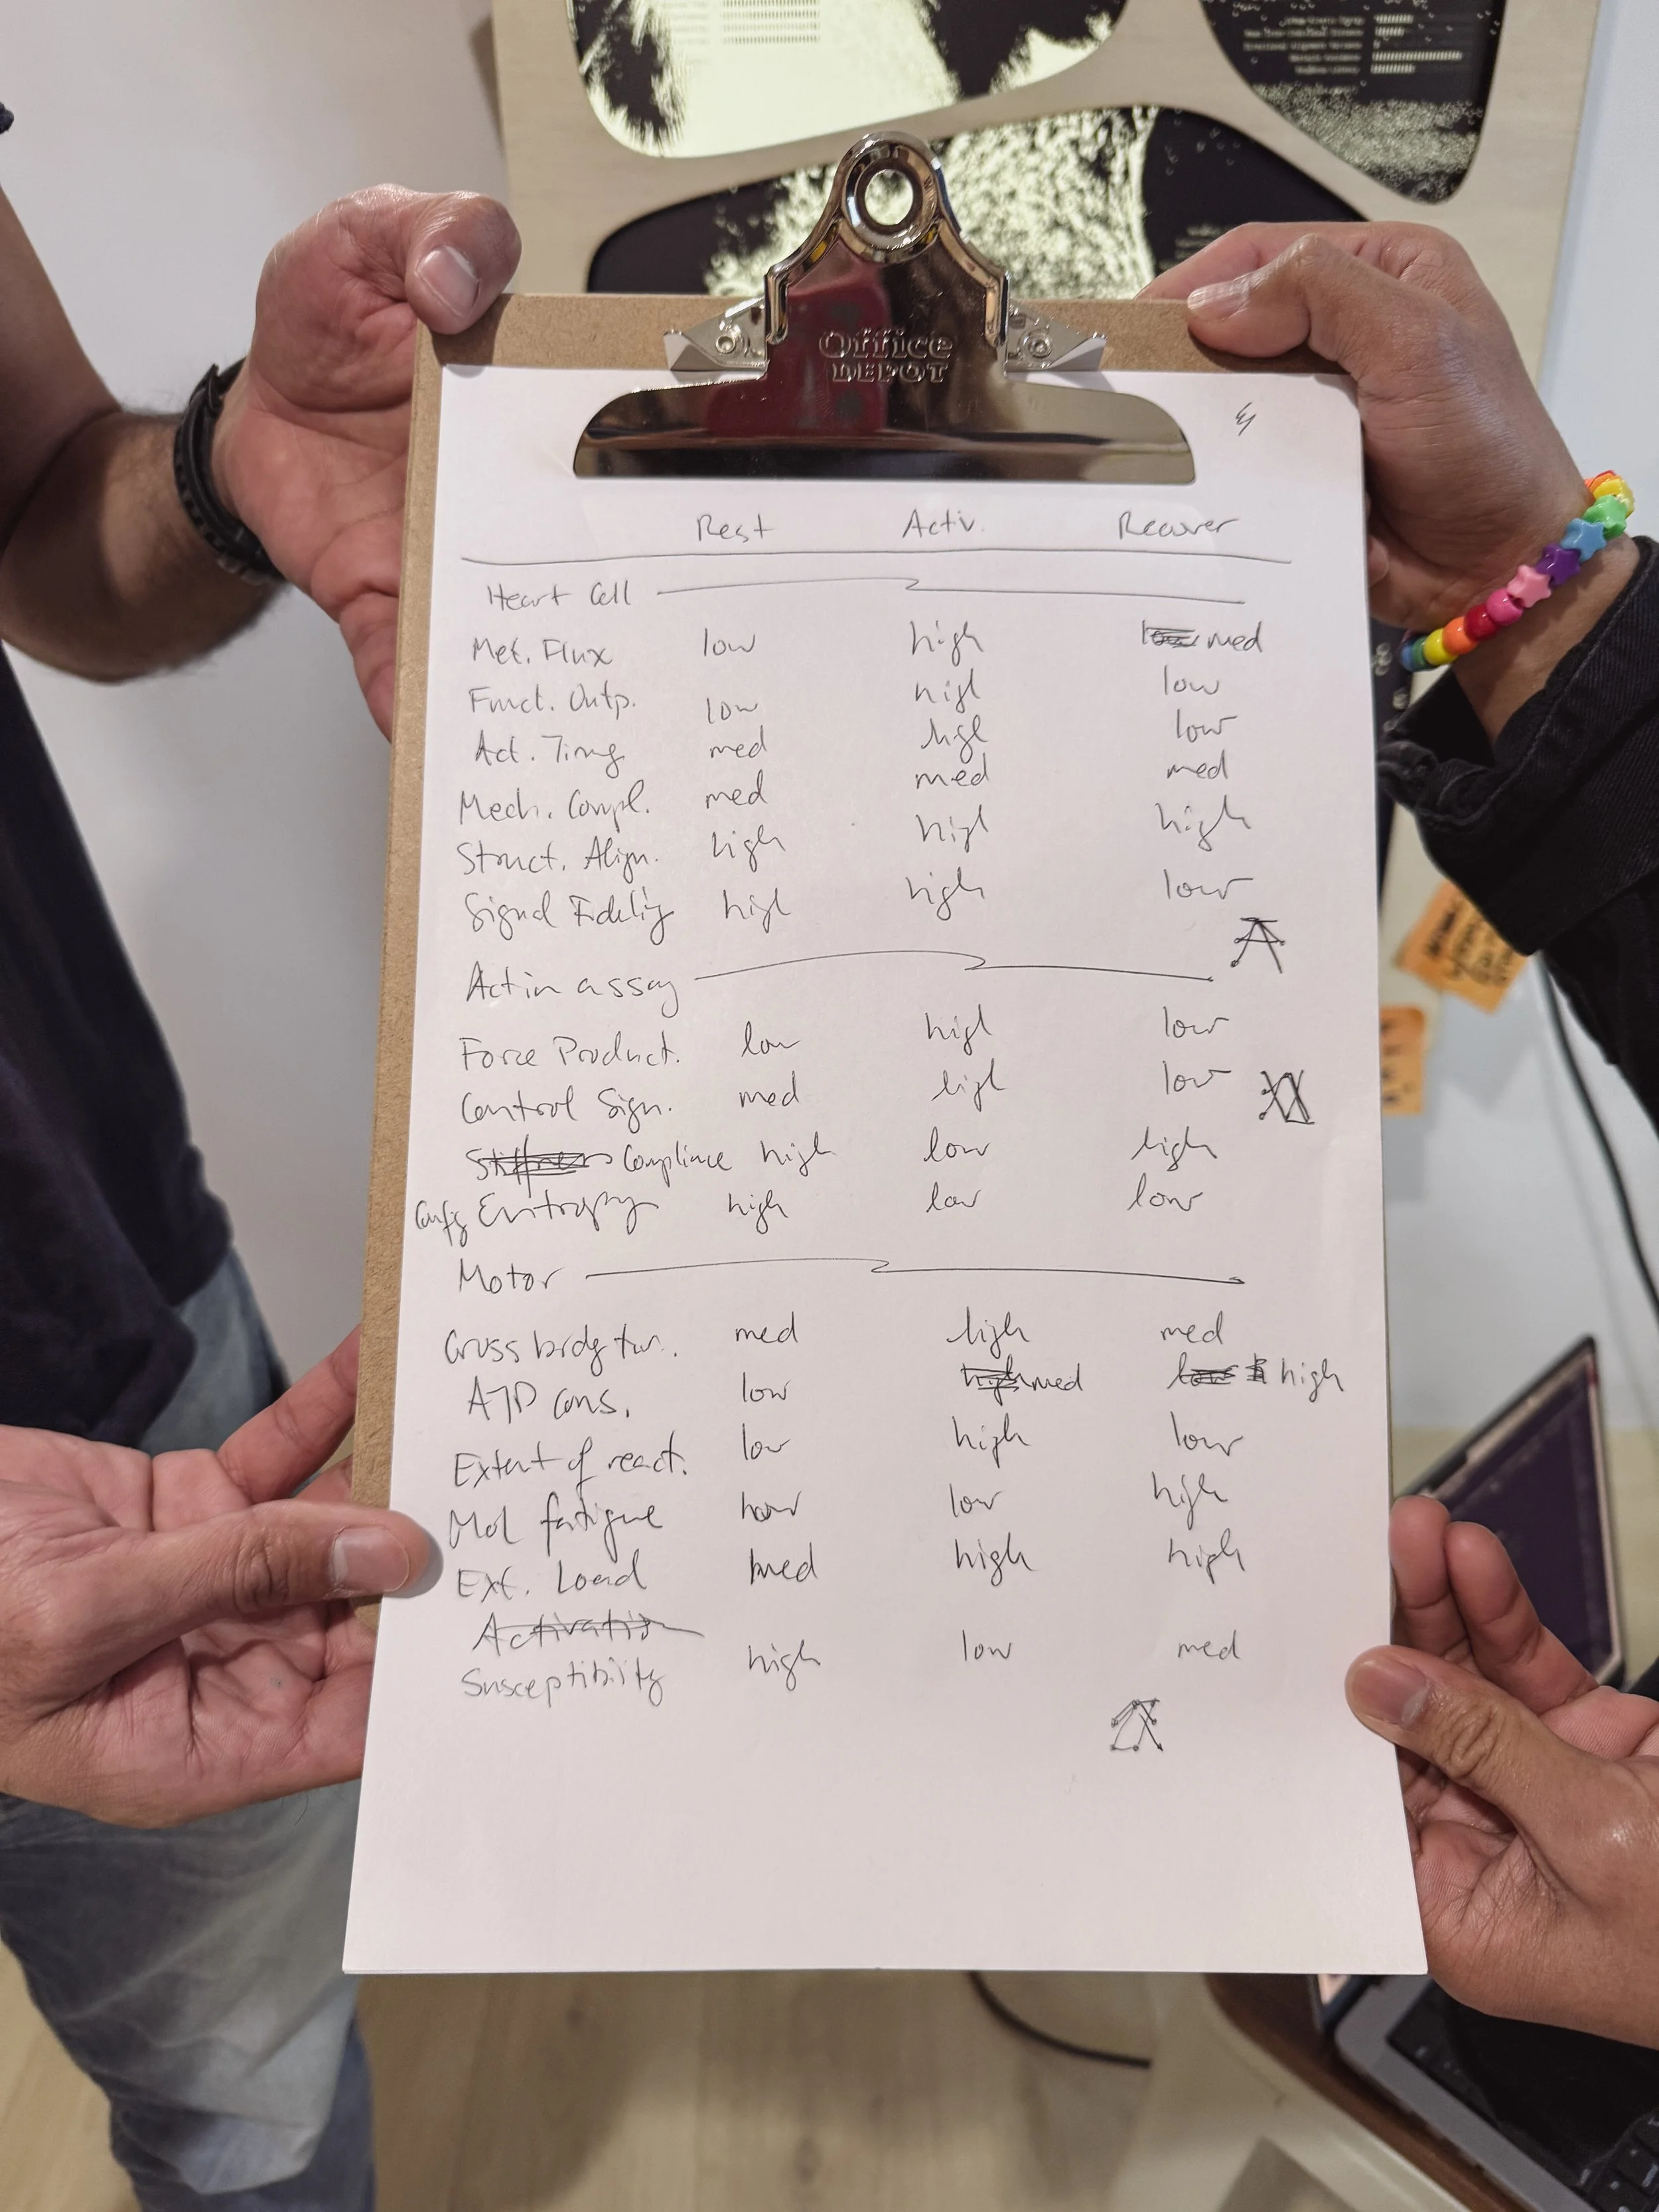 Office
DEPOT
Rest Activ. Recover
Heart Cell
Met. Flux low high low med
Funct. Outp. low high low
Act. Timg med high low
Mech. Compl. med med med
Struct. Align. high high high
Signal Fidelity high high low
Actin assay
Force Product. low high low
Control Sign. med high low
Stiffness Compliance high low high
Config Entropy high low low
Motor
Cross bridg tur. med high med
ATP cons. low high med low high
Extent of react. low high low
Mol fatigue low high
Ext. Load med high high
Activation
Susceptibility high low med